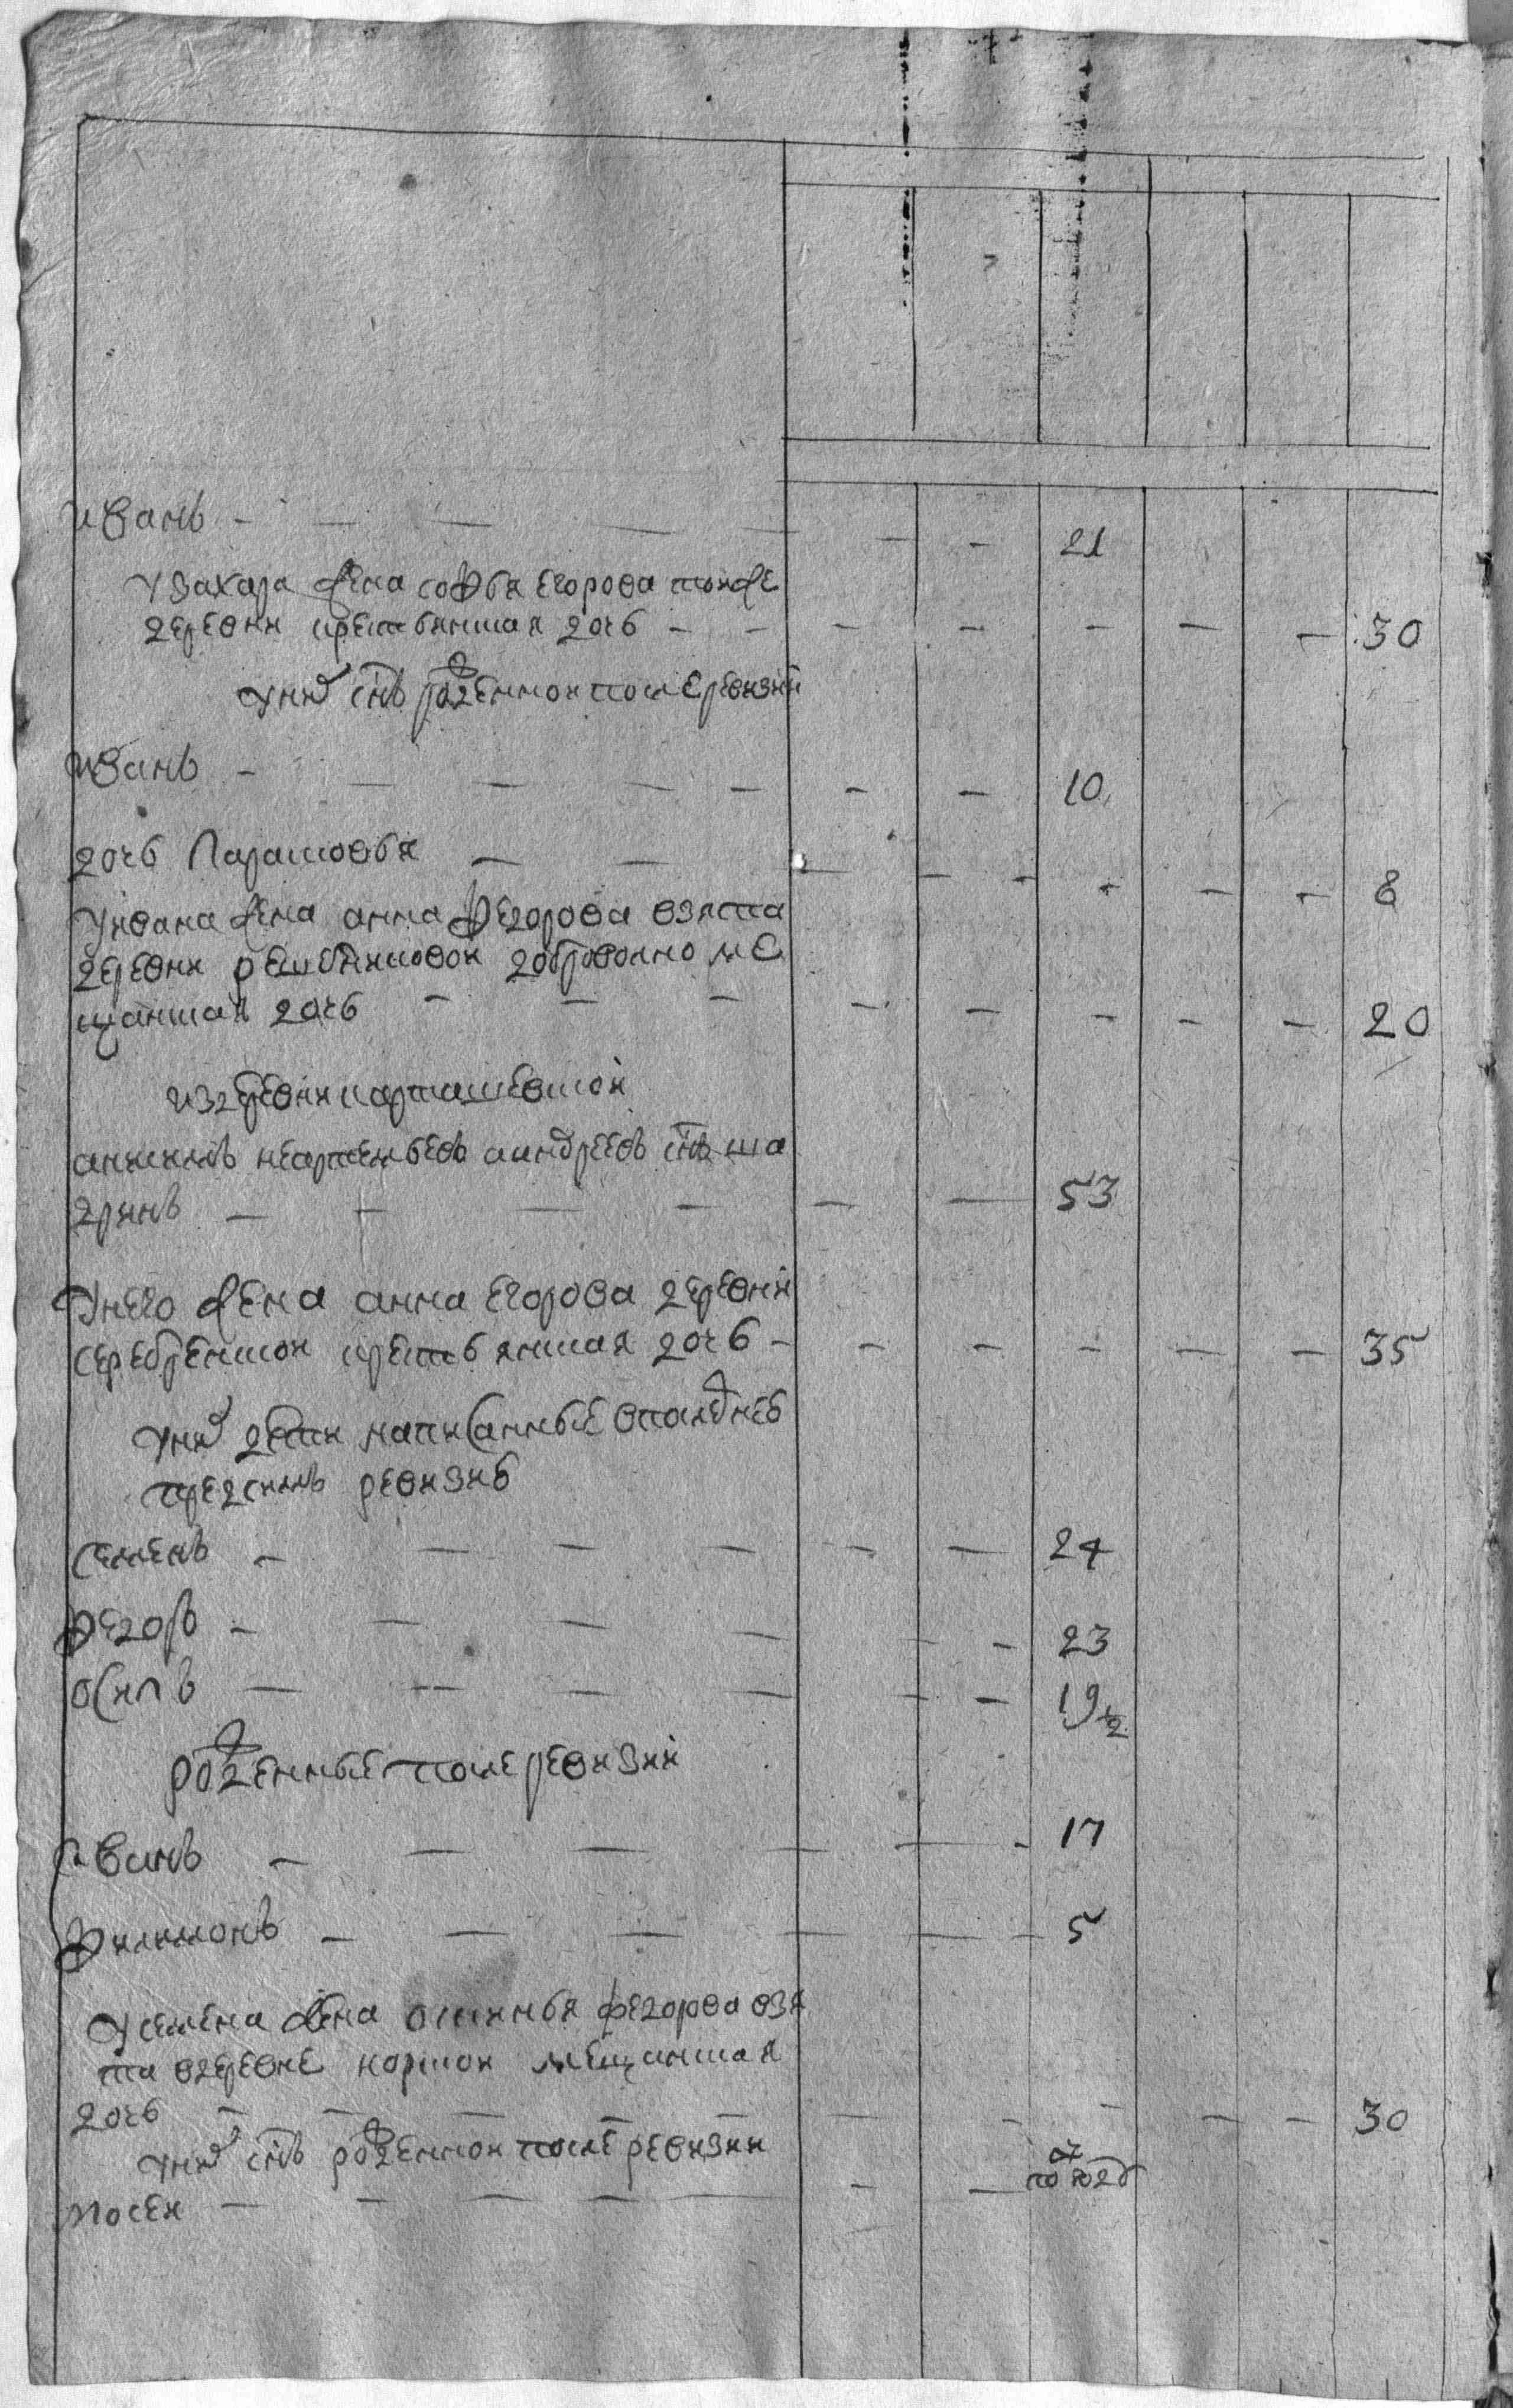 иванъ - - - - - - - 21
у захара жена софья егорова той же
деревни крестьянская дочь - - - - - - - 30
у них снъ рожденной после ревизии
иванъ - - - - - - - 10
дочь Парасковья - - - - - - - - 8
у ивана жена анна федорова взята
деревни доброволно ме
щанская дочь - - - - - - - - 20
из деревни карташевской
аникинъ неартемьевъ а андреевъ снъ ша
дринъ - - - - - - 53
у него жена анна егорова деревни
серебренской крестьянская дочь - - - - - - 35
у них дети написанные в последнею
пред симъ ревизию
семенъ - - - - - - 24
федоръ - - - - - - 23
осипъ - - - - - - 19 1/2
рожденные после ревизии
иванъ - - - - - 17
филимонъ - - - - - - 5
у семена жена федорова взя
та в деревне мещанская
дочь - - - - - - - - - - 30
у них снъ рожденной после ревизии
мосей - - - - - - по году